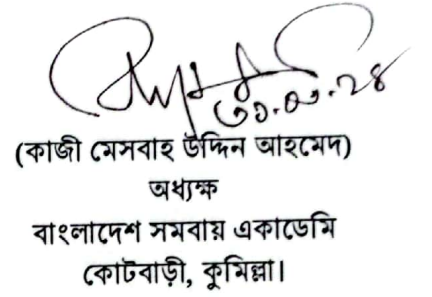 ৩১.০১.২৪
(কাজী মেসবাহ উদ্দিন আহমেদ)
অধ্যক্ষ
বাংলাদেশ সমবায় একাডেমি
কোটবাড়ী, কুমিল্লা।